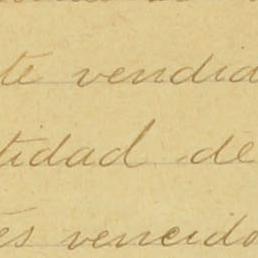 te vendida
tidad de
es vencido